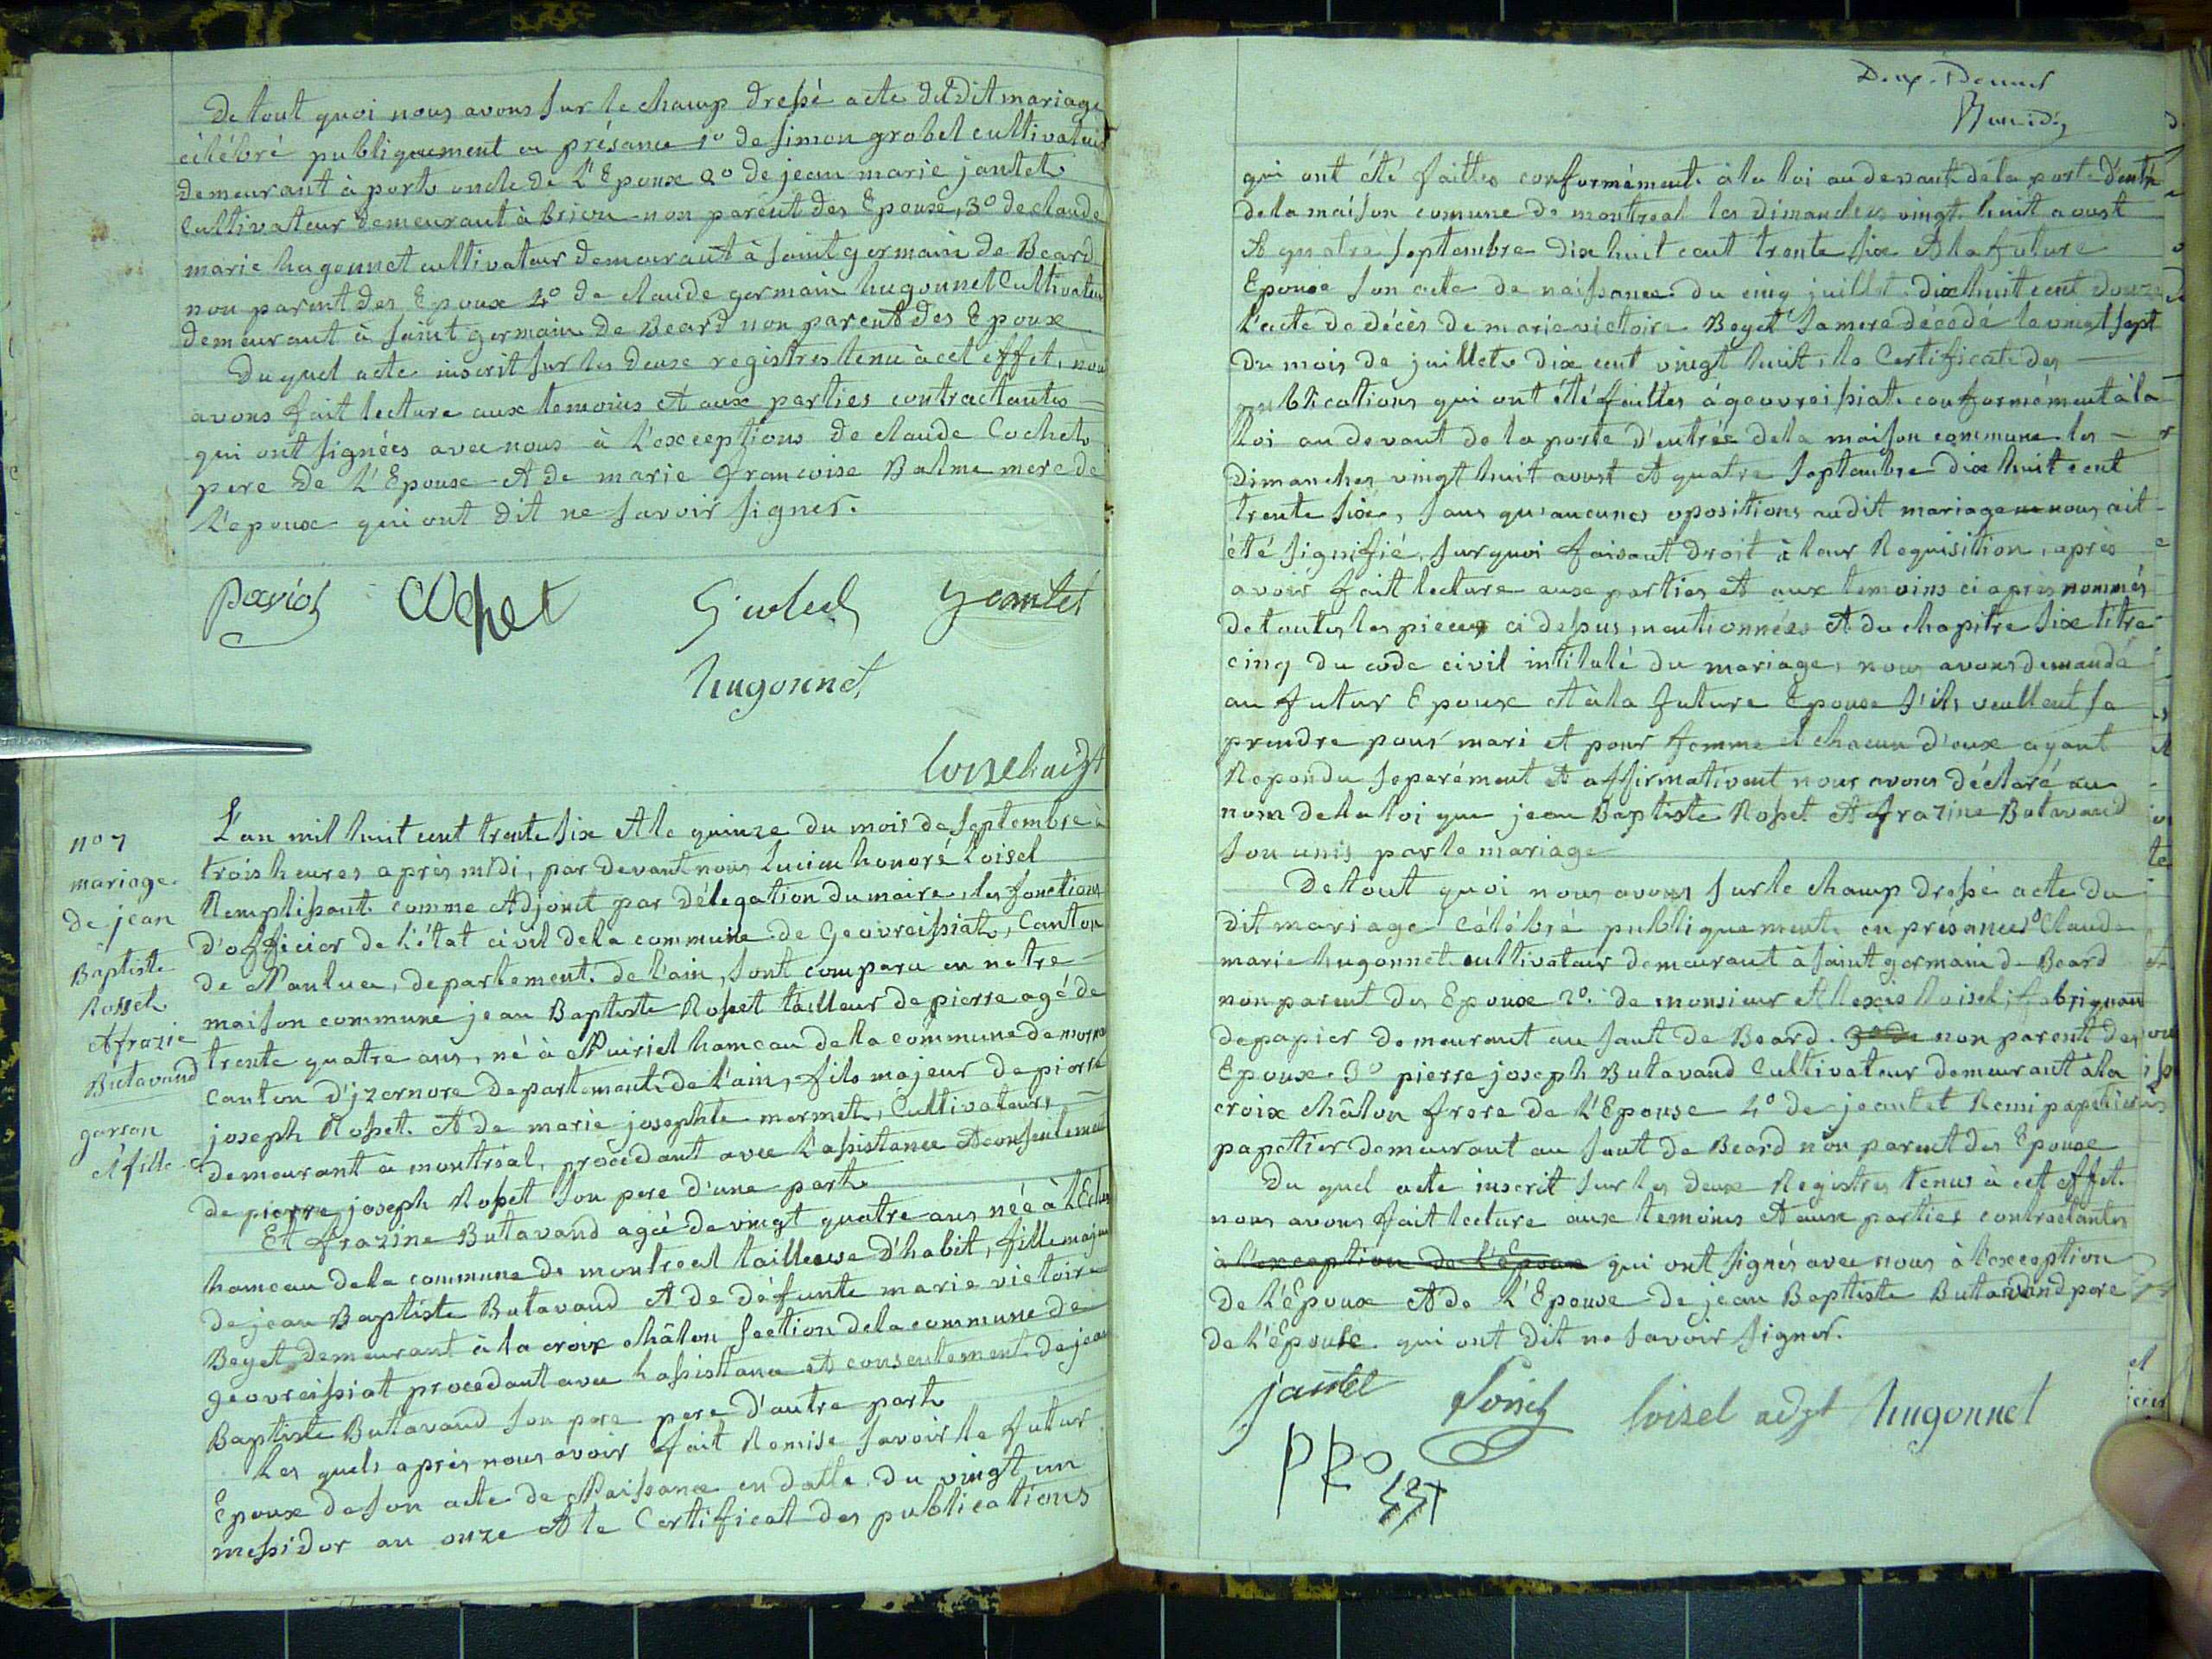 De tout quoi nous avons sur le champ dressé acte dudit mariage
célébré publiquement en présance 1º de simon grobel cultivateur
demeurant à port oncle de L'Epoux 2º de jean marie jantet
cultivateur demeurant à brion non parent des Epoux, 3º de claude
marie hugonnet cultivateur demeurant à saint germain de Beard
non parent des Epoux 4º de claude germain hugonnet Cultivateur
demeurant à saint germain de Beard non parent des Epoux
Duquel acte inscrit sur les deux registres tenu à cet effet, nous
avons fait lecture aux temoins et aux parties contractantes
qui ont signées avec nous à L'exceptions de claude Cochet
pere de L'Epouse et de marie françoise Balme mere de
L'epoux qui ont dit ne savoir signer.
pariod Cochet Gudel Jantet
hugonnet
loisel adjt
nº 7
mariage
de jean
Baptiste
Rosset
et frazie
Butavand
garson
et fille
L'an mil huit cent trente six et le quinze du mois de septembre à
trois heures après midi, par devant nous lucien honoré Loisel
Remplissant comme adjoint par délegation du maire, les fonctions
d'officier de l'état civil de la commune de Geovreissiat, Canton
de Nantua, departement de l'ain, sont comparu en notre
maison commune jean Baptiste Rosset tailleur de pierre agé de
trente quatre ans, né à Nuiriel hameau de la commune de morna
canton d'jzernore departement de l'ain, fils majeur de pierre
joseph Rosset et de marie josephte mermet, Cultivateurs
demeurant a montréal, procédant avec l'assistance et consentement
de pierre joseph Rosset son pere d'une part
Et frazine Butavand agée de vingt quatre ans née à l'Eclus
hameau de la commune de montreal tailleuse d'habit, fille majeur
de jean Baptiste Butavand et de défunte marie victoire
Beyet demeurant à la croix châlon section de la commune de
géovreissiat procedant avec l'assistance et consentement de jean
Baptiste Butavand son pere pere d'autre part
Les quels après nous avoir fait Remise savoir le futur
Epoux de son acte de Naissance en datte du vingt un
messidor an onze et le Certificat des publications
qui ont été faittes conformément à la loi au devant de la porte d'entré
de la maison comune de montreal les dimanches vingt huit aoust
et quatre septembre dix huit cent trente six et la future
Epouse son acte de naissance du cinq juillet dix huit cent douze
L'acte de décès de marie victoire Beyet sa mere décédé le vingt sept
du mois de juillet dix cent vingt huit, le Certificat des
publications qui ont été faittes à géovreissiat conformément à la
loi au devant de la porte d'entrée de la maison commune les
dimanches vingt huit aoust et quatre septembre dix huit cent
trente six, sans qu'aucunes opositions audit mariage ne nous ait
été signifié, surquoi faisant droit à leur Requisition, après
avoir fait lecture aux parties et aux temoins ci après nommés
de toutes les pieces ci dessus mentionnées et du chapitre six titre
cinq du code civil intitulé du mariage, nous avons demandé
au futur Epoux et à la future Epouse s'ils veullent se
prendre pour mari et pour femme et chacun d'eux ayant
Repondu separément et affirmativent nous avons déclaré au
nom de la loi que jean Baptiste Rosset et frazine Butavand
son unis par le mariage
De tout quoi nous avons sur le champ dressé acte du
dit mariage célébré publiquement en présance 1º Claude
marie hugonnet cultivateur demeurant à saint germain de Beard
non parent des Epoux 2º de monsieur Alexis Loisel, fabriquant
de papier demeurant au saut de Beard. 3º de non parent des
Epoux. 3º pierre joseph Butavand Cultivateur demeurant à la
croix châlon frere de L'Epouse 4º de jeantet Remi papetier
papetier demeurant au saut de Beard non parent des Epoux
Du quel acte inscrit sur les deux Registres tenus à cet effet
nous avons fait lecture aux temoins et aux parties contractantes
à l'exception de l'époux qui ont signés avec nous à l'exception
de L'Epoux et de L'Epouse de jean Baptiste Butavand pere
de L'Epouse qui ont dit ne savoir signer.
jantet Loisel loisel adjt hugonnet